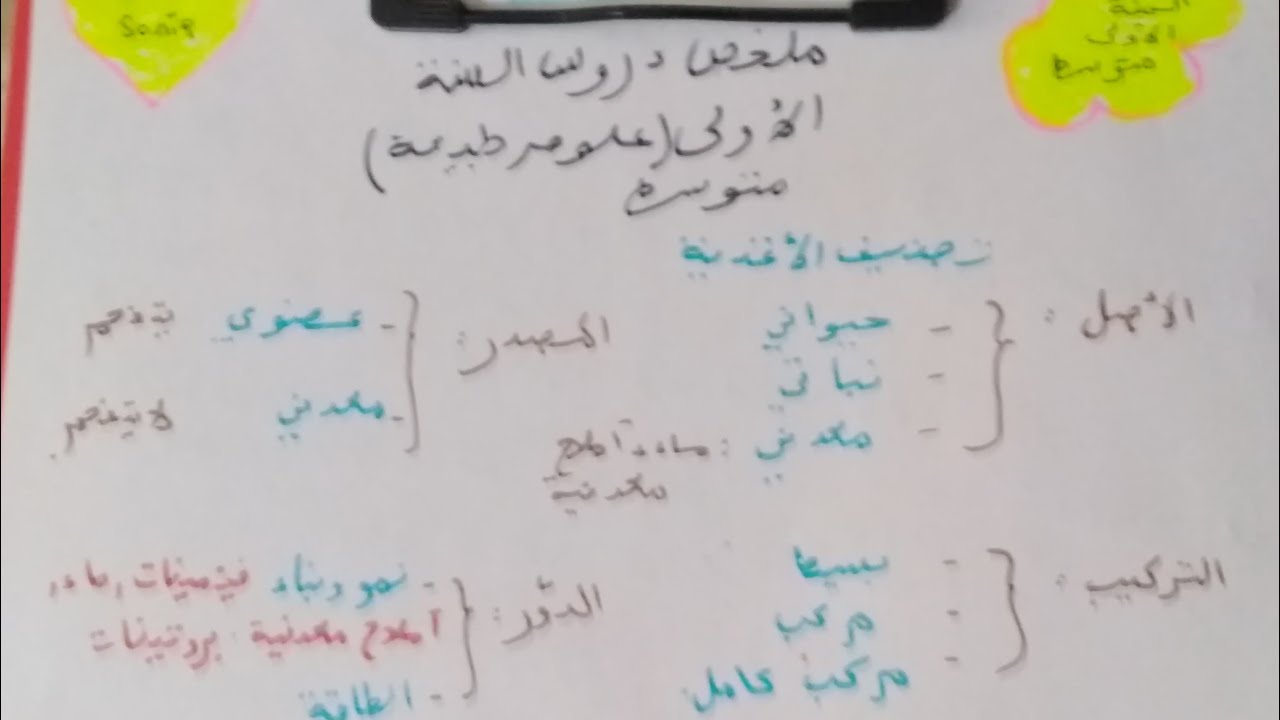 السنة
الأولى
متوسط
ملخص دروس السنة
الأولى (علوم طبيعة)
متوسط
تصنيف الأغذية
الأصل:
- حيواني
- نباتي
- معدني: ماء، أملاح
معدنية
المصدر:
- عضوي يتفحم
- معدني لا يتفحم
التركيب:
- بسيط
- مركب
- مركب كامل
الدور:
- نمو وبناء فيتمينات، ماء،
أملاح معدنية بروتينات
- الطاقة